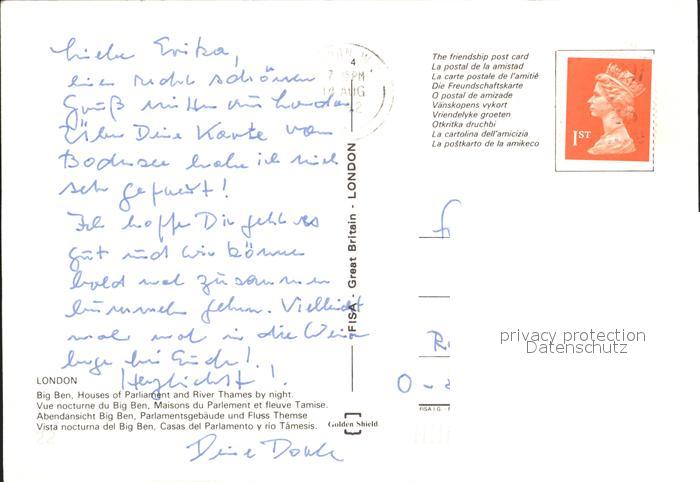 Liebe Erika,
einen recht schönen
Gruß mitten aus London
Über Deine Karte vom
Bodensee habe ich mich
sehr gefreut!
Ich hoffe Dir geht es
gut und wir können
bald mal zusammen
bummeln gehen. Vielleicht
mal in die
bei Euch!
Herzlichst!
Deine
LONDON
Big Ben, Houses of Parliament and River Thames by night.
Vue nocturne du Big Ben, Maisons du Parlement et fleuve Tamise.
Abendansicht Big Ben, Parlamentsgebäude und Fluss Themse
Vista nocturna del Big Ben, Casas del Parlamento y río Támesis.
FISA - Great Britain - LONDON
Golden Shield
4
7 15PM
AUG
The friendship post card
La postal de la amistad
La carte postale de l'amitié
Die Freundschaftskarte
O postal de amizade
Vänskopens vykort
Vriendelyke groeten
Otkritka druchbi
La cartolina dell'amicizia
La poŝtkarto de la amikeco
1ST
privacy protection
Datenschutz
FISA I.G.